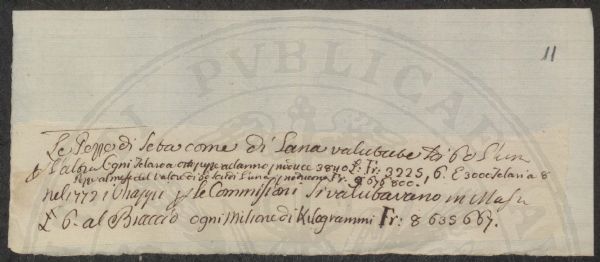 PVBLICA
11
Le Pezze di Seta come di Lana valutate Fr: 60 L'una
L'altra Ogni Telaro a annno produce 3840 £: Fr: 3225, 6. E 3000 Telari a 8
Pezze al mese del valore di scudi L'una producono Fr. 9 676 800.
nel 1772 i Viaggi le Commissioni si valutavano in
£ 6. al Braccio ogni Milione di Kilogrammi Fr: 8 635 667.